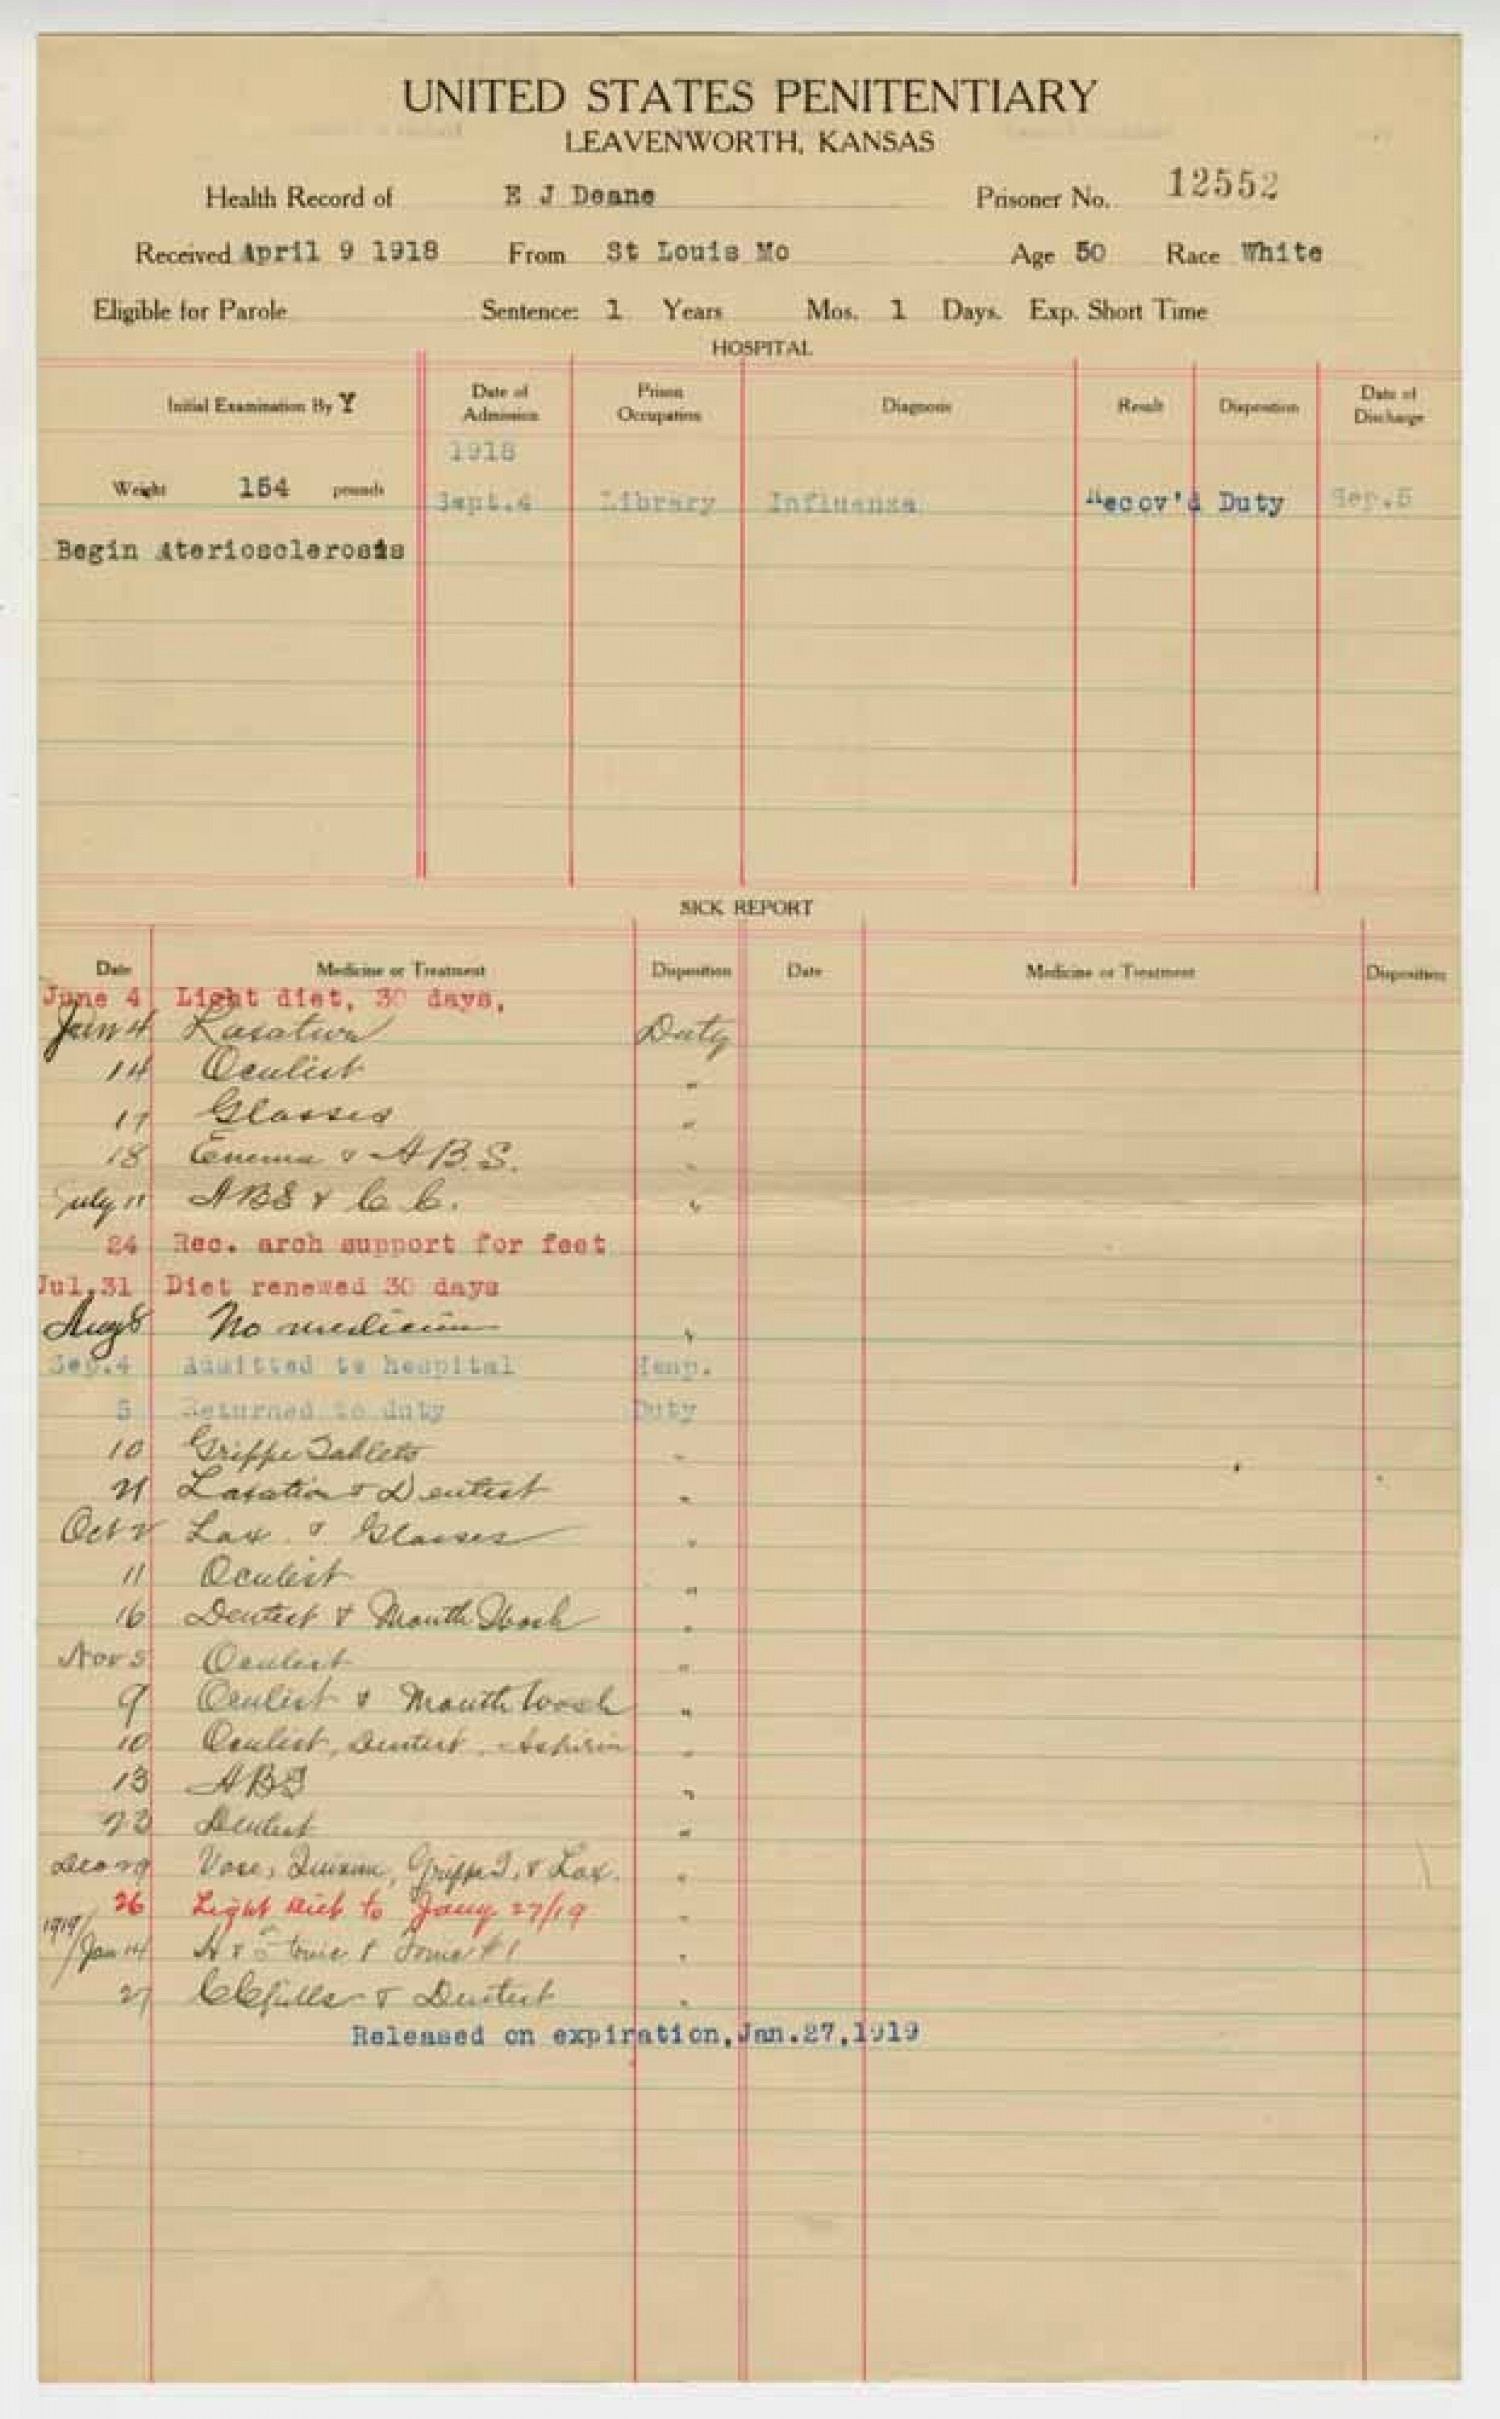 UNITED STATES PENITENTIARY
LEAVENWORTH, KANSAS
Health Record of E J Deane Prisoner No. 12552
Received April 9 1918 From St Louis Mo Age 50 Race White
Eligible for Parole Sentence: 1 Years Mos. 1 Days. Exp. Short Time
HOSPITAL
Initial Examination By Y Date of Admission Prison Occupation Diagnosis Result Disposition Date of Discharge
1918
Weight 154 pounds Sept.4 Library Influenza Recov'd Duty Sep.5
Begin Ateriosclerosis
SICK REPORT
Date Medicine or Treatment Disposition Date Medicine or Treatment Disposition
June 4 Light diet, 30 days,
Jun 4 Laxative Duty
14 Oculist "
17 Glasses "
18 Enema & A.B.S. "
July 11 ABS & C C. "
24 Rec. arch support for feet
Jul,31 Diet renewed 30 days
Aug 8 No medicine "
Sep.4 Admitted to hospital Hosp.
5 Returned to duty Duty
10 Grippe Tablets "
21 Laxative & Dentist "
Oct 2 Lax. & Glasses "
11 Oculist "
16 Dentist & Mouth Wash "
Nov 5 Oculist "
9 Oculist & Mouth Wash "
10 Oculist, Dentist, Aspirin "
13 ABS "
23 Dentist "
Dec Quinine, Grippe T. & Lax. "
26 Light diet to Jany 27/19 "
1919/Jan 14 tonic & "
27 CC pills & Dentist "
Released on expiration, Jan.27,1919